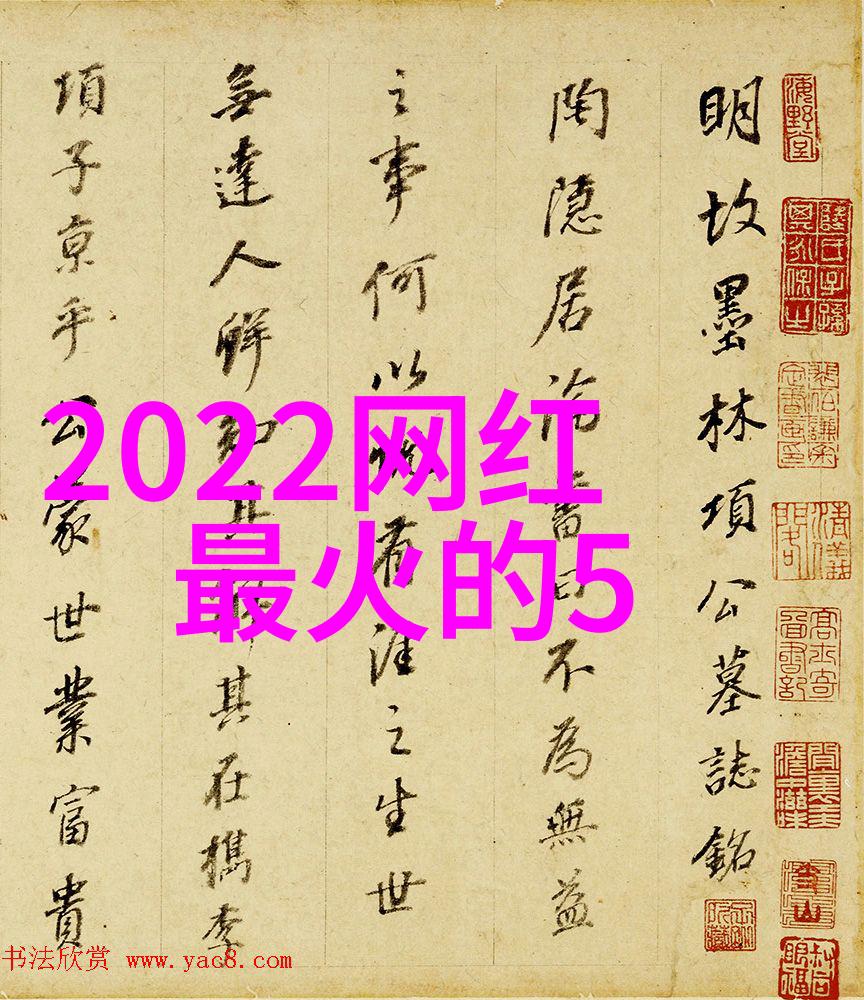 海野堂
明故墨林項公墓誌銘
陶隱居論書曰不為無益
之事何以悅有涯之生世
無達人鮮知其解其在檇李
項子京乎公蒙世業富貴
2022网红
最火的5
书法欣赏 www.yac8.com